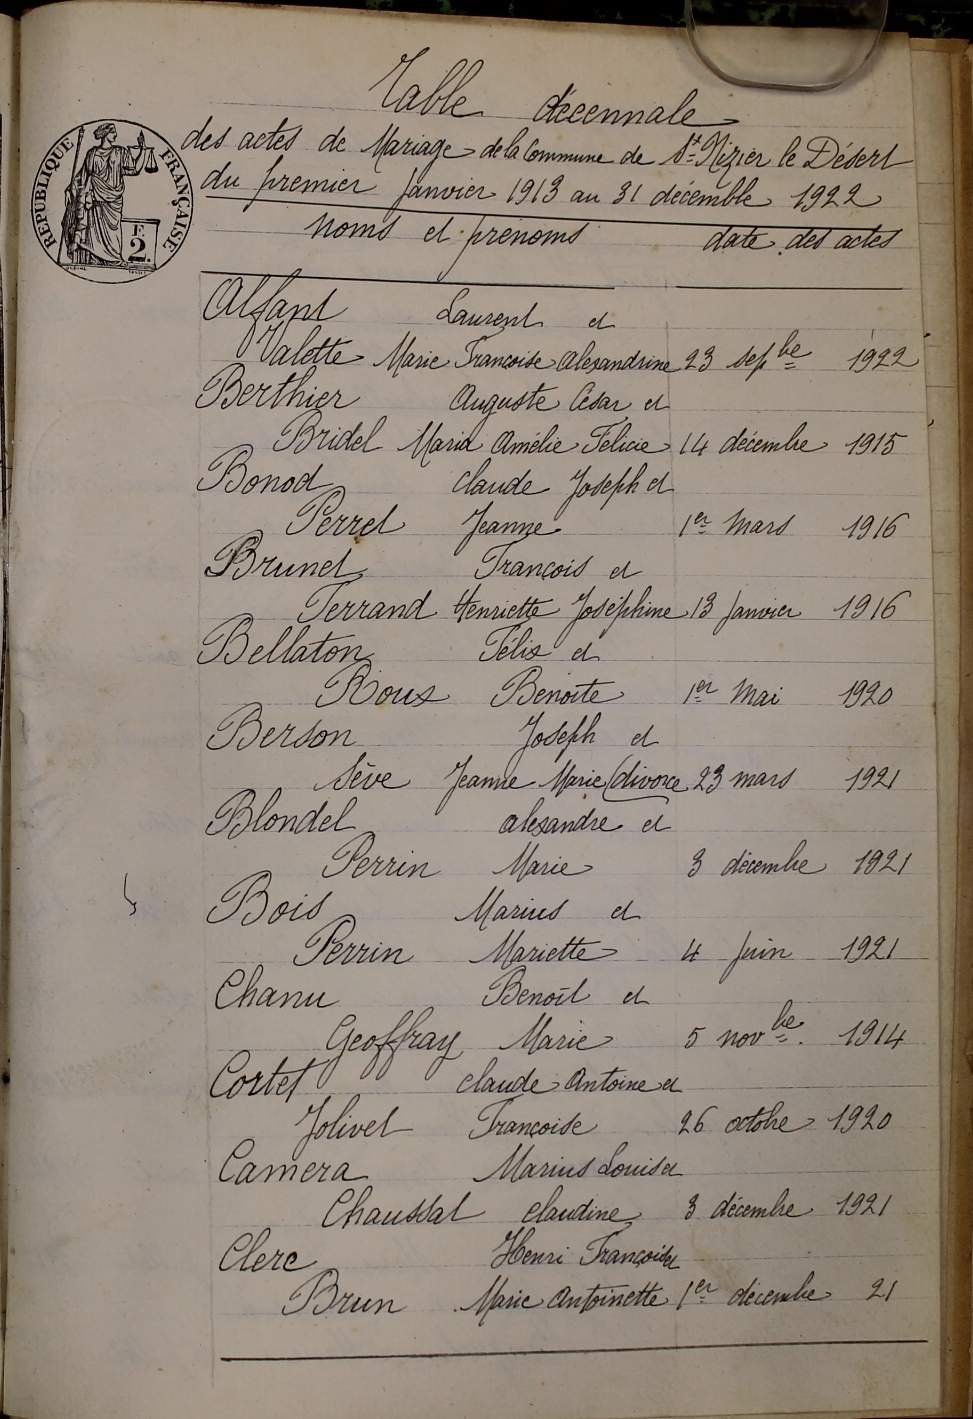 RÉPUBLIQUE FRANÇAISE
F
2.
Table décennale
des actes de Mariage de la Commune de St Nizier le Désert
du premier Janvier 1913 au 31 décembre 1922
Noms et prénoms date des actes
Alfant Laurent et
Valette Marie Françoise Alexandrine 23 sepbe 1922
Berthier Auguste César et
Bridel Maria Amélie Félicie 14 décembre 1915
Bonod Claude Joseph et
Perret Jeanne 1er Mars 1916
Brunet François et
Ferrand Henriette Joséphine 13 Janvier 1916
Bellaton Félix et
Roux Benoite 1er Mai 1920
Berson Joseph et
Sève Jeanne Marie (divorce 23 mars 1921
Blondel Alexandre et
Perrin Marie 3 décembre 1921
Bois Marius et
Perrin Mariette 4 Juin 1921
Chanu Benoît et
Geoffray Marie 5 novbe. 1914
Cortet Claude Antoine et
Jolivet Françoise 26 octobre 1920
Camera Marius Louis et
Chaussat Claudine 3 décembre 1921
Clerc Henri François et
Brun Marie Antoinette 1er décembre 21